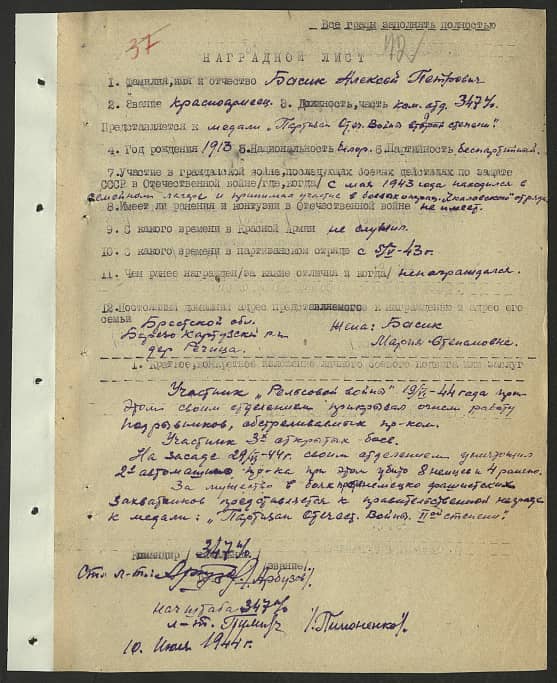 Все графы заполнять полностью
37
НАГРАДНОЙ ЛИСТ
1. Фамилия, имя и отчество Басик Алексей Петрович
2. Звание красноармеец. 3. Должность, часть ком. отд. 347
Представляется к медали „Партизан Отеч. Войны второй степени"
4. Год рождения 1913 5. Национальность белор. 6. Партийность беспартийный.
7. Участие в гражданской войне, последующих боевых действиях по защите
СССР в Отечественной войне /где, когда/ с мая 1943 года находился в
семейном лагере и принимал участие в боевых операц. отряда
8. Имеет ли ранения и контузии в Отечественной войне не имеет.
9. С какого времени в Красной Армии не служил.
10. С какого времени в партизанском отряде с 43 г.
11. Чем ранее награжден /за какие отличия и когда/ ненаграждался.
12. Постоянный домашний адрес представляемого к награждению и адрес его
семьи
Брестской обл. Жена: Басик
Березо Картузский р-н Мария Степановна.
дер. Речица.
1. Краткое, конкретное изложение личного боевого подвига или заслуг
Участник „Рельсовой войны" 19 44 года при
этом своим отделением прикрывал огнем работу
подрывников, обстреливаемых пр-ком.
Участник 3х открытых боев.
На засаде 44 г. своим отделением уничтожил
2е автомашины пр-ка при этом убито 8 немцев и 4 ранено.
За мужество в борьбе немецко фашистских
захватчиков представляется к правительственной награде
к медали: „Партизан Отечест. Войны IIой степени"
Командир 347
/звание/
Ст. л-т /Арбузов/.
Нач штаба 347
л-т. /Пимоненко/.
10 Июля 1944 г.